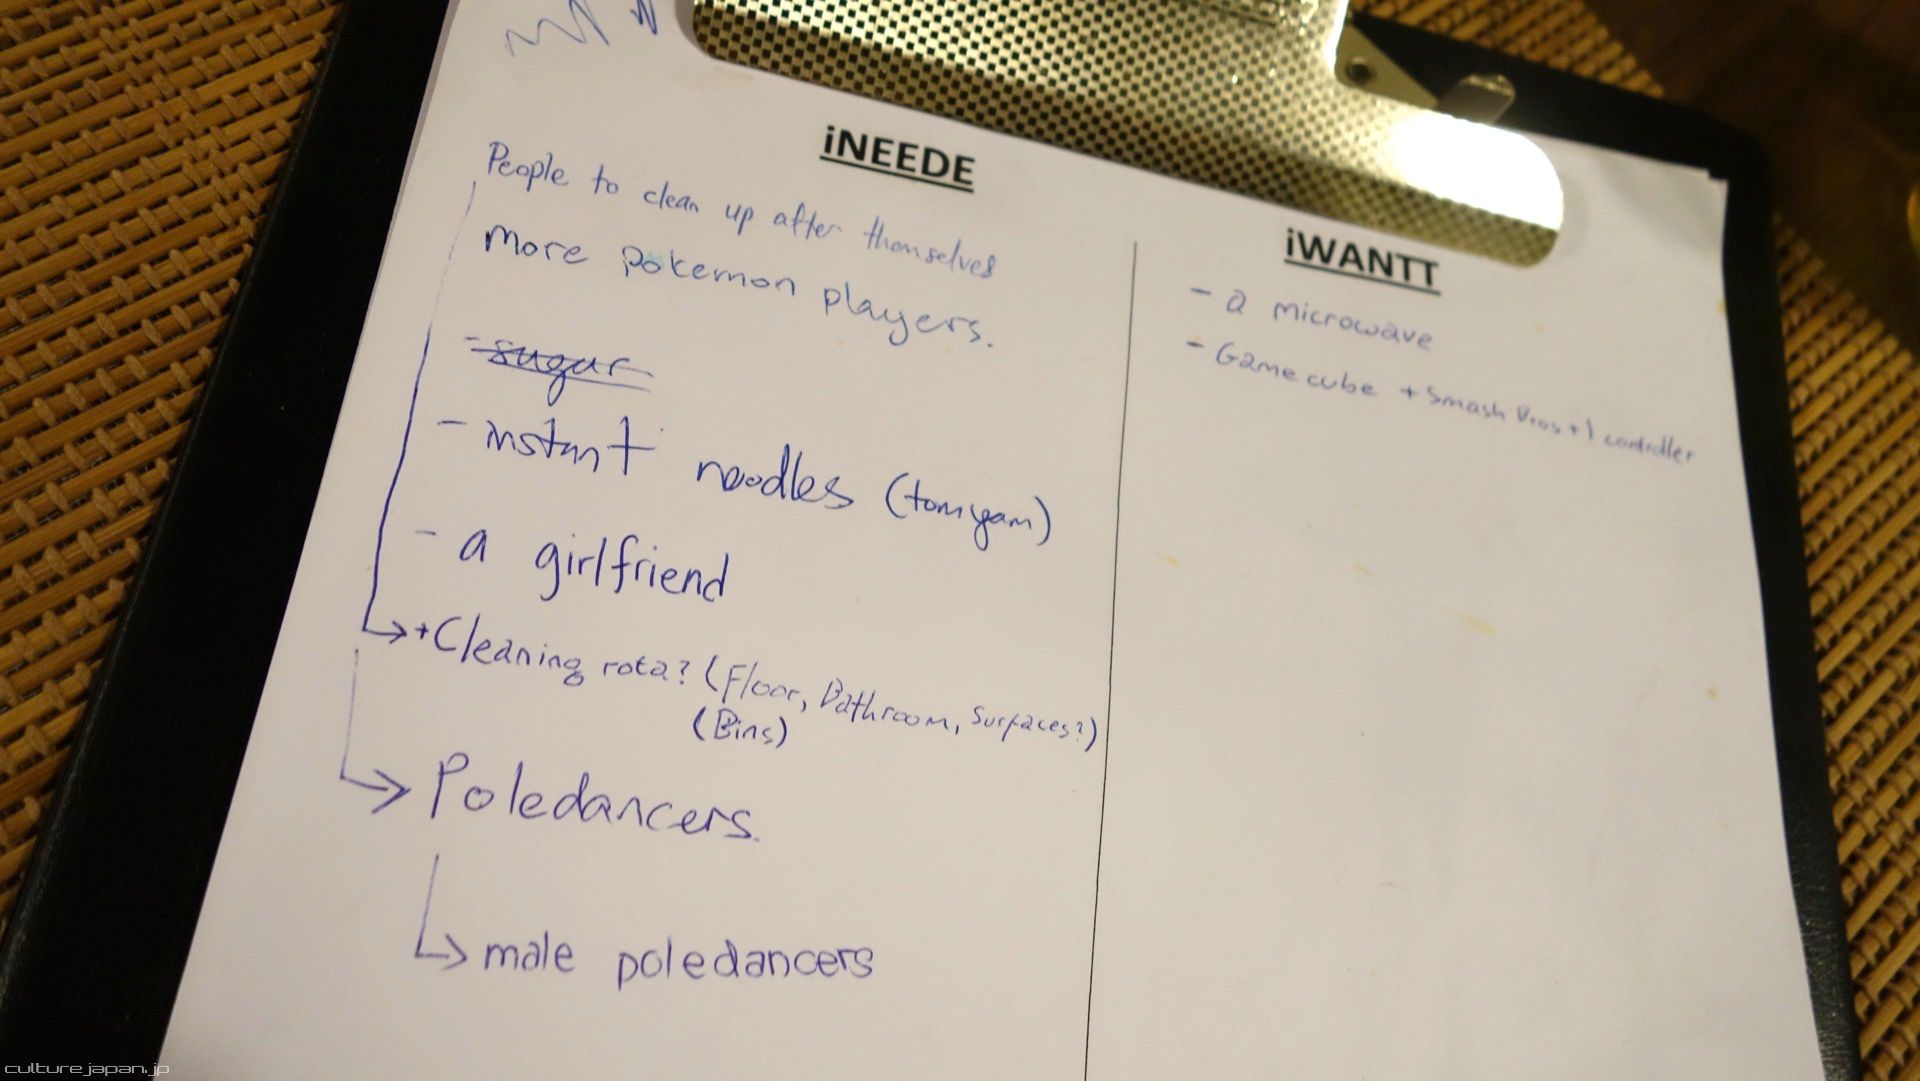 iNEEDE
People to clean up after themselves
more pokemon players.
- sugar
- instant noodles (tomyam)
- a girlfriend
+ Cleaning rota? (Floor, Bathroom, Surfaces?)
(Bins)
Poledancers.
male poledancers
iWANTT
- a microwave
- Gamecube + Smash Bros + 1 controller
culturejapan.jp